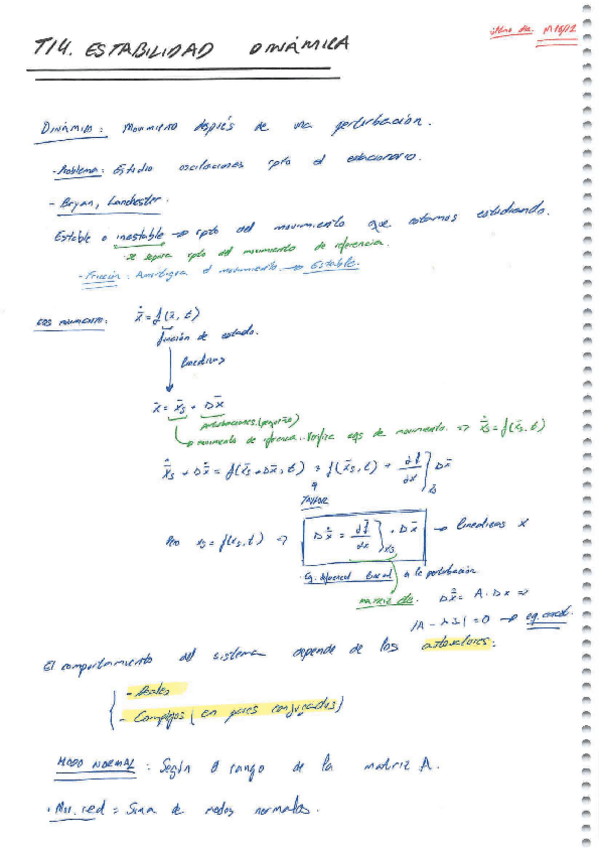 T14. ESTABILIDAD DINÁMICA
Dinámica: Movimiento después de una perturbación.
- Problema: Estudio oscilaciones rpto el estacionario.
- Bryan, Lanchester.
Estable o inestable → rpto del movimiento que estamos estudiando.
se separa rpto del movimiento de referencia.
- Fricción: Amortigua el movimiento → Estable.
ẋ = f(x̄, t)
función de estado.
x̄ = x̄s + Δx̄
perturbaciones (pequeño)
movimiento de referencia. Verifica eqs de movimiento. ⇒ ẋs = f(x̄s, t)
ẋs + Δẋ = f(x̄s + Δx̄, t) = f(x̄s, t) + ∂f/∂x] Δx̄
TAYLOR
Pero ẋs = f(xs, t) ⇒ Δẋ = ∂f/∂x]xs · Δx̄ →
Eq. diferencial lineal a la perturbación
matriz de. Δẋ = A · Δx ⇒
|A - λI| = 0 → eq. caract.
El comportamiento del sistema depende de los autovalores:
- Reales
- Complejos (en pares conjugados)
MODO NORMAL: Según el rango de la matriz A.
· Mov. red = Suma de modos normales.